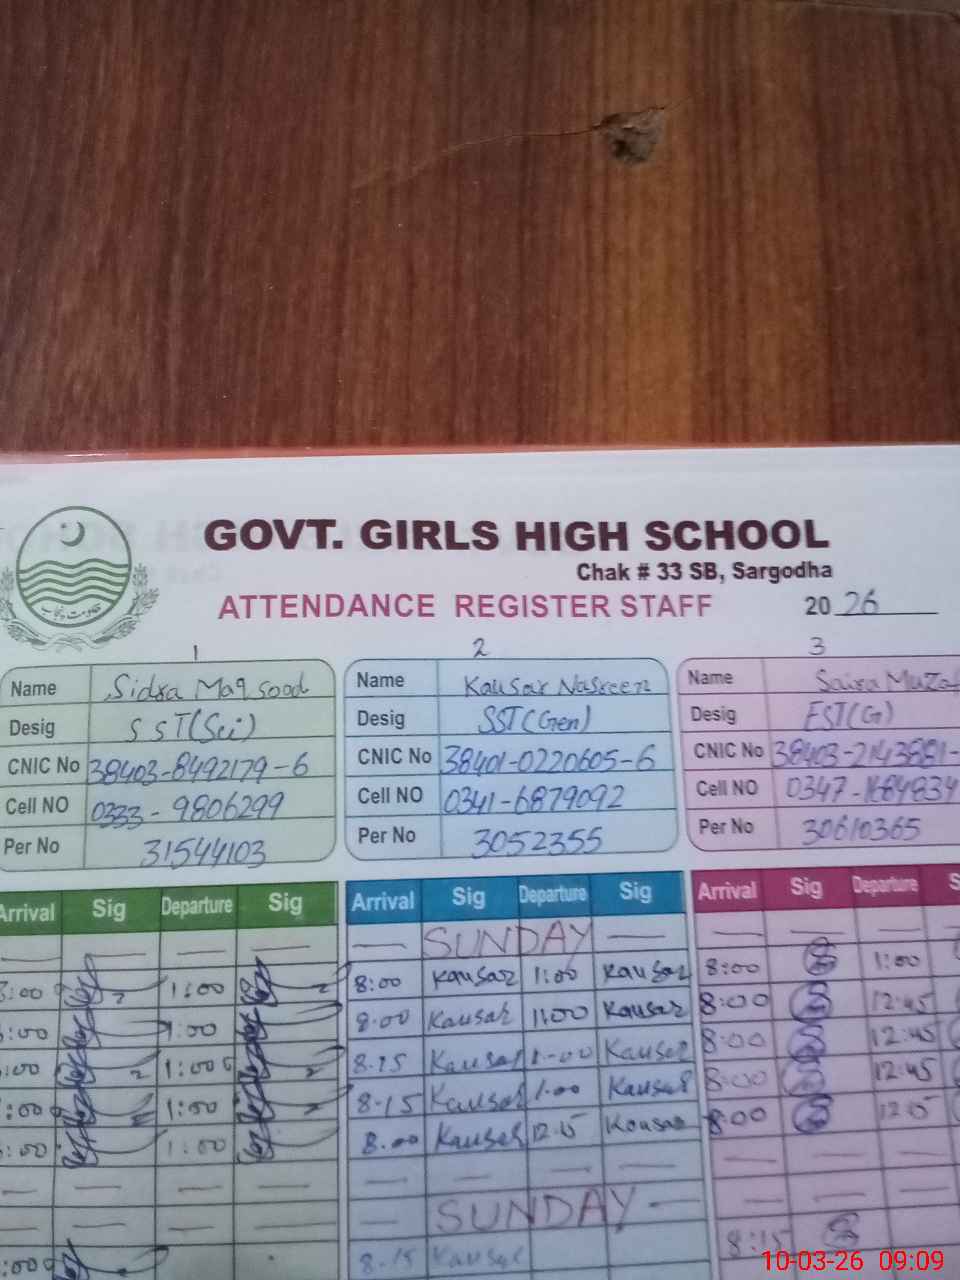 GOVT. GIRLS HIGH SCHOOL
Chak # 33 SB, Sargodha
ATTENDANCE REGISTER STAFF 2026
1 2 3
Name Sidra Maqsood Name Kausar Nasreen Name Saira
Desig SST(Sci) Desig SST(Gen) Desig EST(G)
CNIC No 38403-8492179-6 CNIC No 38401-0220605-6 CNIC No 38403-2143881-
Cell NO 0333-9806299 Cell NO 0341-6879092 Cell NO 0347-1684834
Per No 31544103 Per No 3052355 Per No 30610365
Arrival Sig Departure Sig Arrival Sig Departure Sig Arrival Sig Departure
SUNDAY
8:00 1:00 8:00 Kausar 1:00 Kausar 8:00 1:00
:00 1:00 8:00 Kausar 1:00 Kausar 8:00 12:45
:00 1:00 8.15 Kausar 1-00 Kausar 8:00 12:45
:00 1:00 8.15 Kausar 1.00 Kausar 8:00 12:45
:00 1:00 8.00 Kausar 12.15 Kausar 8:00 12:15
SUNDAY
:00 8.15 Kausar 8:15
10-03-26 09:09